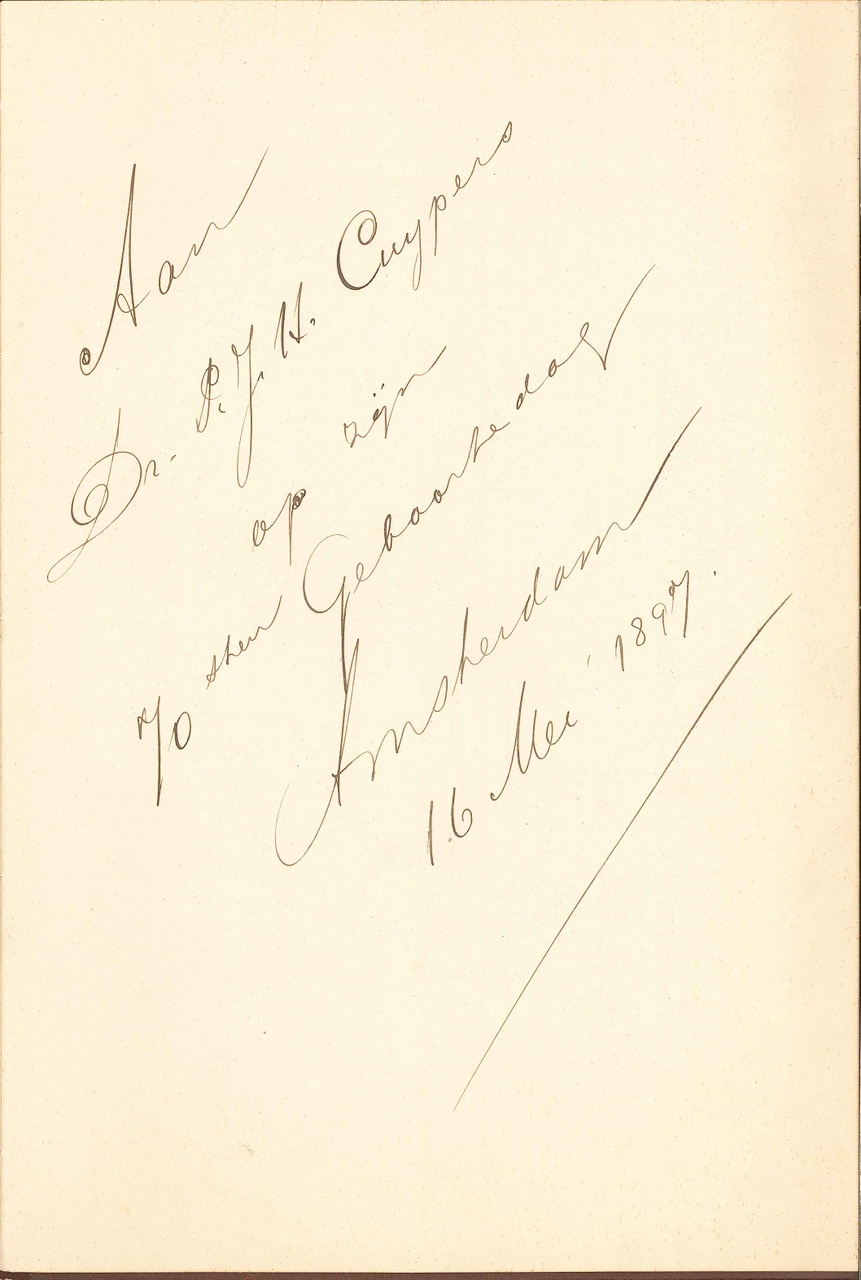 Aan
Dr. P. J. H. Cuypers
op zijn
70sten Geboortedag
Amsterdam
16 Mei 1897.